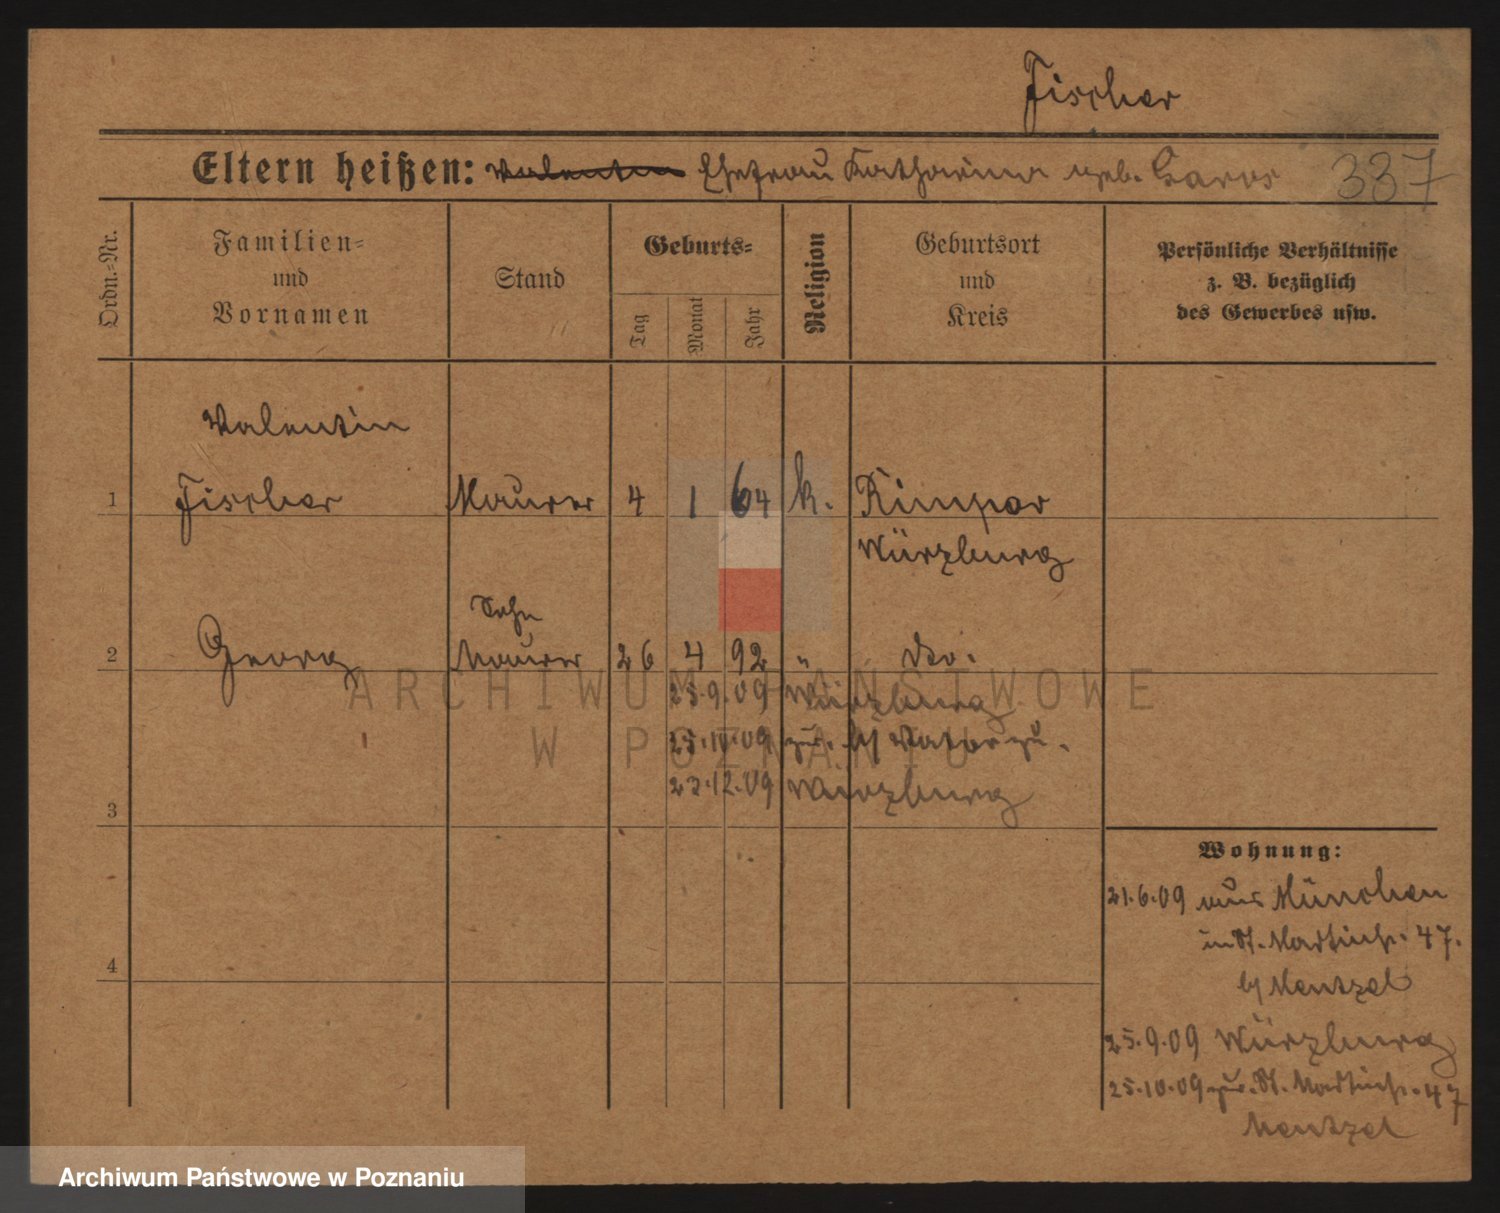 Fischer
Eltern heißen: Valentin Ehefrau Katharina geb. 337
Ordn.-Nr.
Familien-
und
Vornamen
Stand
Geburts-
Tag
Monat
Jahr
Religion
Geburtsort
und
Kreis
Persönliche Verhältnisse
z. B. bezüglich
des Gewerbes usw.
Valentin
1 Fischer Maurer 4 1 64 k. Rimpar
Würzburg
Sohn
2 Georg Maurer 26 4 92 " Dto.
25.9.09 Würzburg
25.10.09 zur. b/ Vater zu.
23.12.09 Würzburg
3
4
Wohnung:
21.6.09 aus München
in St. Martinstr. 47.
b/ Mentzel
25.9.09 Würzburg
25.10.09 zur. St. Martinstr. 47
Mentzel
ARCHIWUM PAŃSTWOWE
W POZNANIU
Archiwum Państwowe w Poznaniu